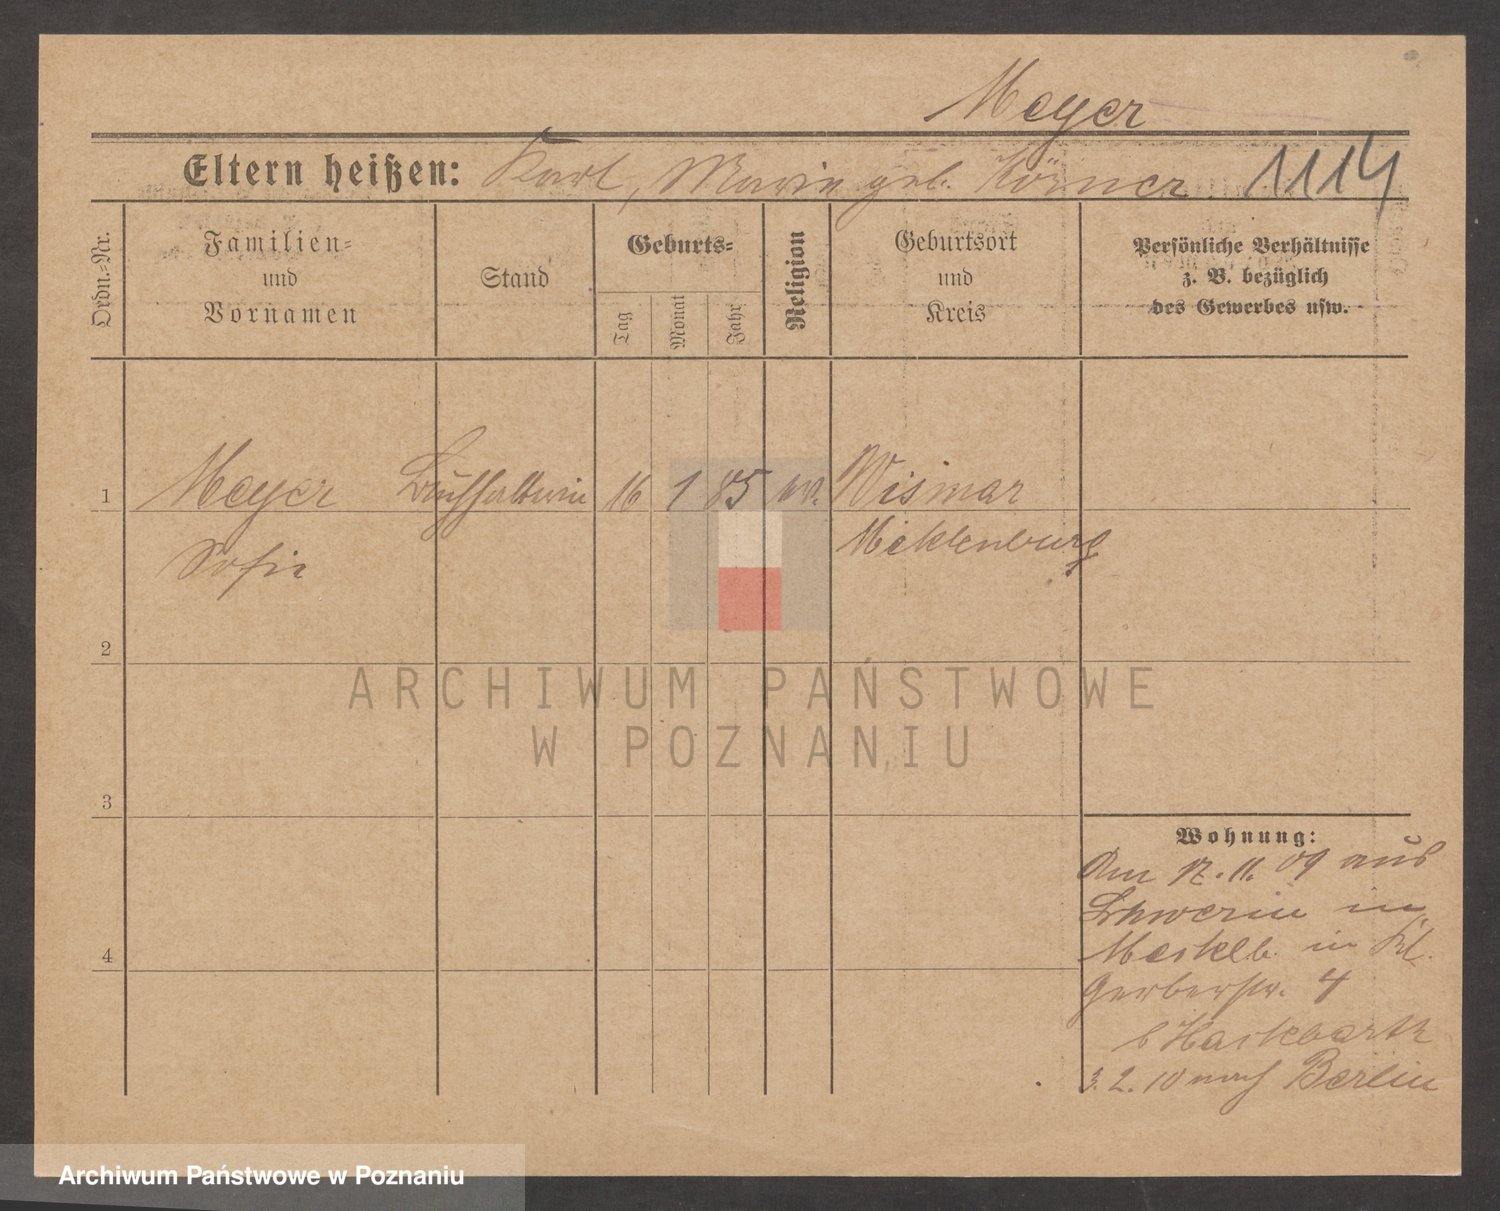 Meyer
Eltern heißen: Karl, Marie geb. Körner 1114
Ordn.-Nr.
Familien-
und
Vornamen
Stand
Geburts-
Tag
Monat
Jahr
Religion
Geburtsort
und
Kreis
Persönliche Verhältnisse
z. B. bezüglich
des Gewerbes usw.
1 Meyer Buchhalterin 16 1 85 ev. Wismar
Sofie Mecklenburg
2
ARCHIWUM PAŃSTWOWE
W POZNANIU
3
Wohnung:
Am 17.11.09 aus
Schwerin in
Mecklb. in Kl.
4
Gerberstr. 4
b Hackbarth
3.2.10 nach Berlin
Archiwum Państwowe w Poznaniu